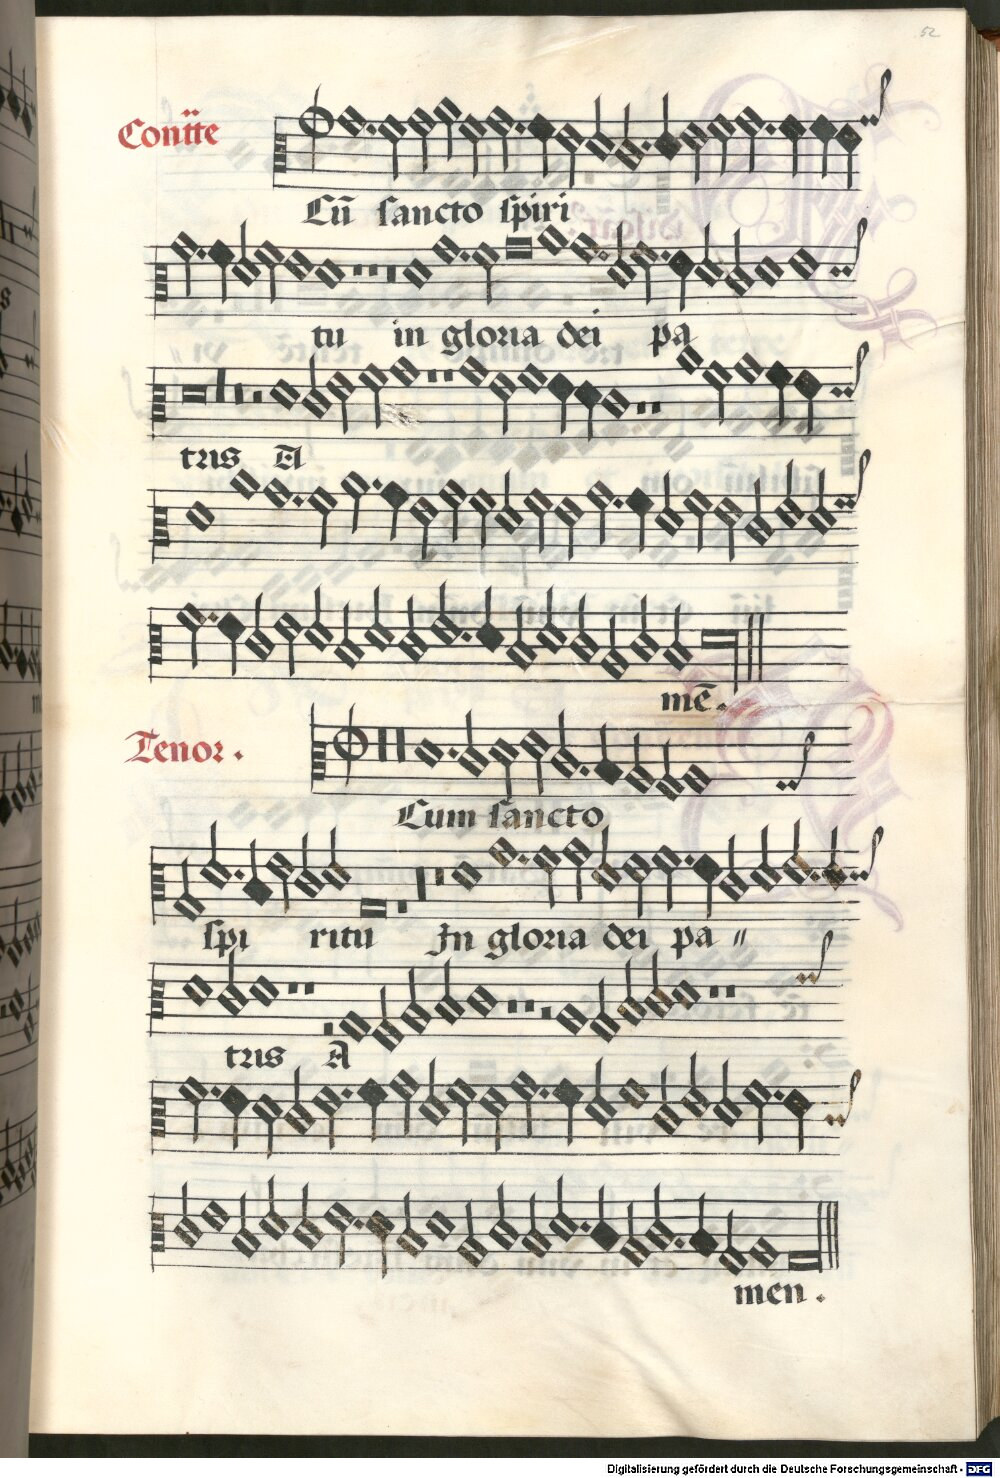 52
Contͣte
Cū sancto spiri
tu in gloria dei pa
tris A
mē.
Tenor.
Cum sancto
spi ritu In gloria dei pa〃
tris A
men.
Digitalisierung gefördert durch die Deutsche Forschungsgemeinschaft - DFG